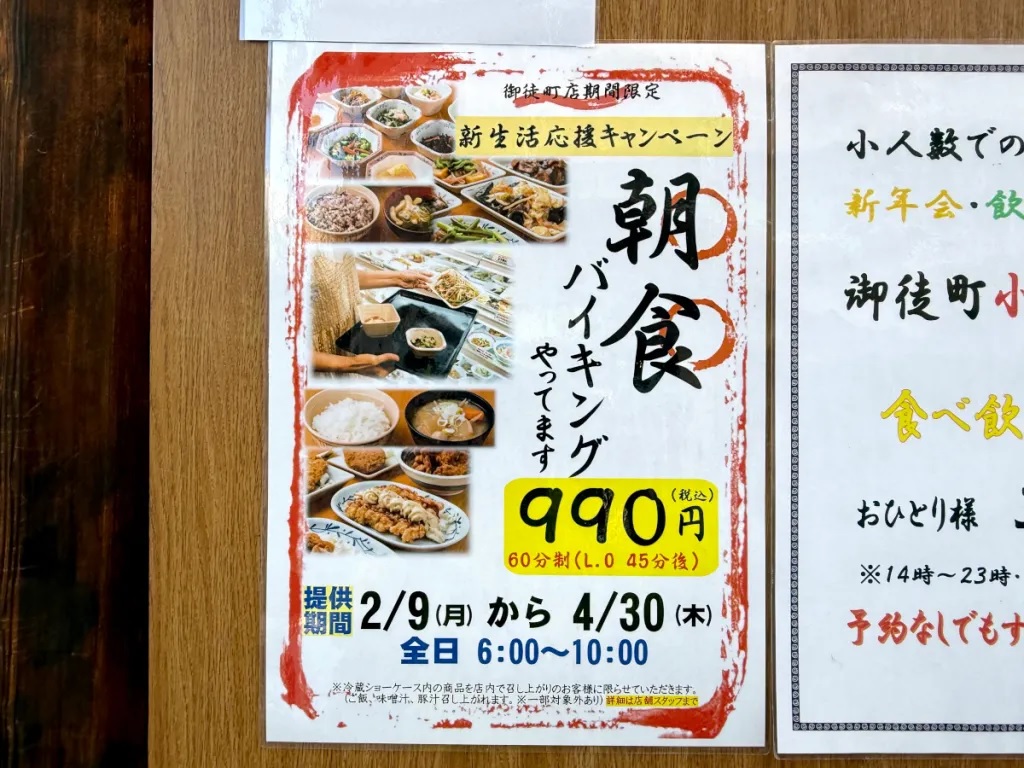 御徒町店期間限定
新生活応援キャンペーン
朝食
バイキング
やってます
990円(税込)
60分制(L.O 45分後)
提供期間 2/9(月) から 4/30(木)
全日 6:00〜10:00
※冷蔵ショーケース内の商品を店内で召し上がりのお客様に限らせていただきます。
(ご飯、味噌汁、豚汁召し上がれます。※一部対象外あり)詳細は店舗スタッフまで
小人数での
新年会・飲
御徒町小
食べ飲
おひとり様
※14時〜23時・
予約なしでもす